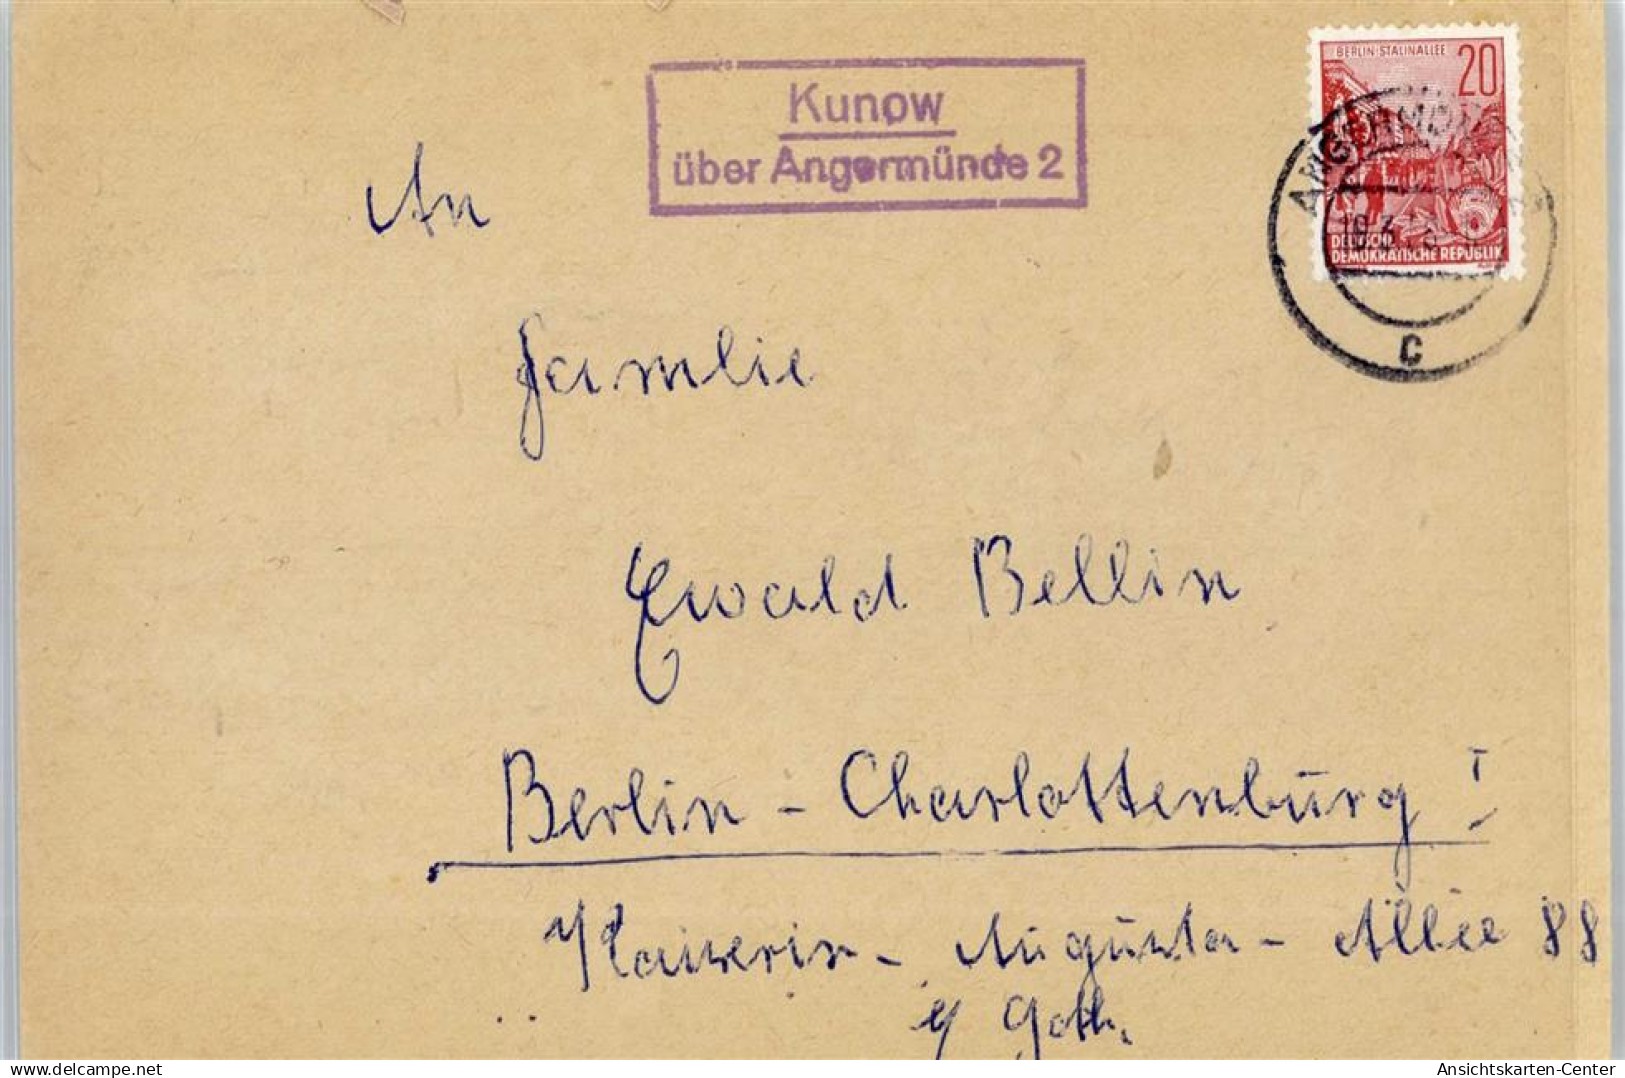 Kunow
über Angermünde 2
BERLIN-STALINALLEE 20
DEUTSCHE
DEMOKRATISCHE REPUBLIK
ANGERMÜNDE
c
An
Familie
Ewald Bellin
Berlin - Charlottenburg I
Kaiserin - Augusta - Allee 88
b/ Goth.
delcampe.net
Ansichtskarten-Center